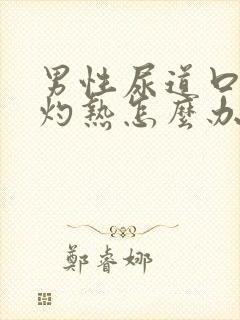 男性尿道口
灼熱怎麼办
鄭睿娜